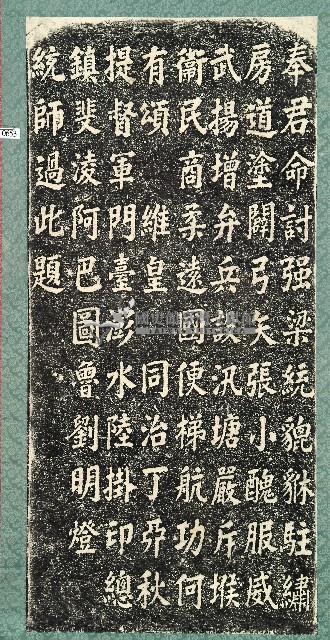 奉君命討强梁統貔貅駐繡
房道塗闢弓矢張小醜服威
武揚增弁兵設汛塘嚴斥堠
衞民商柔遠國便梯航功何
有頌 維皇 同治丁卯秋
提督軍門臺澎水陸掛印總
鎮斐淩阿巴圖魯劉明燈
統師過此題
0653